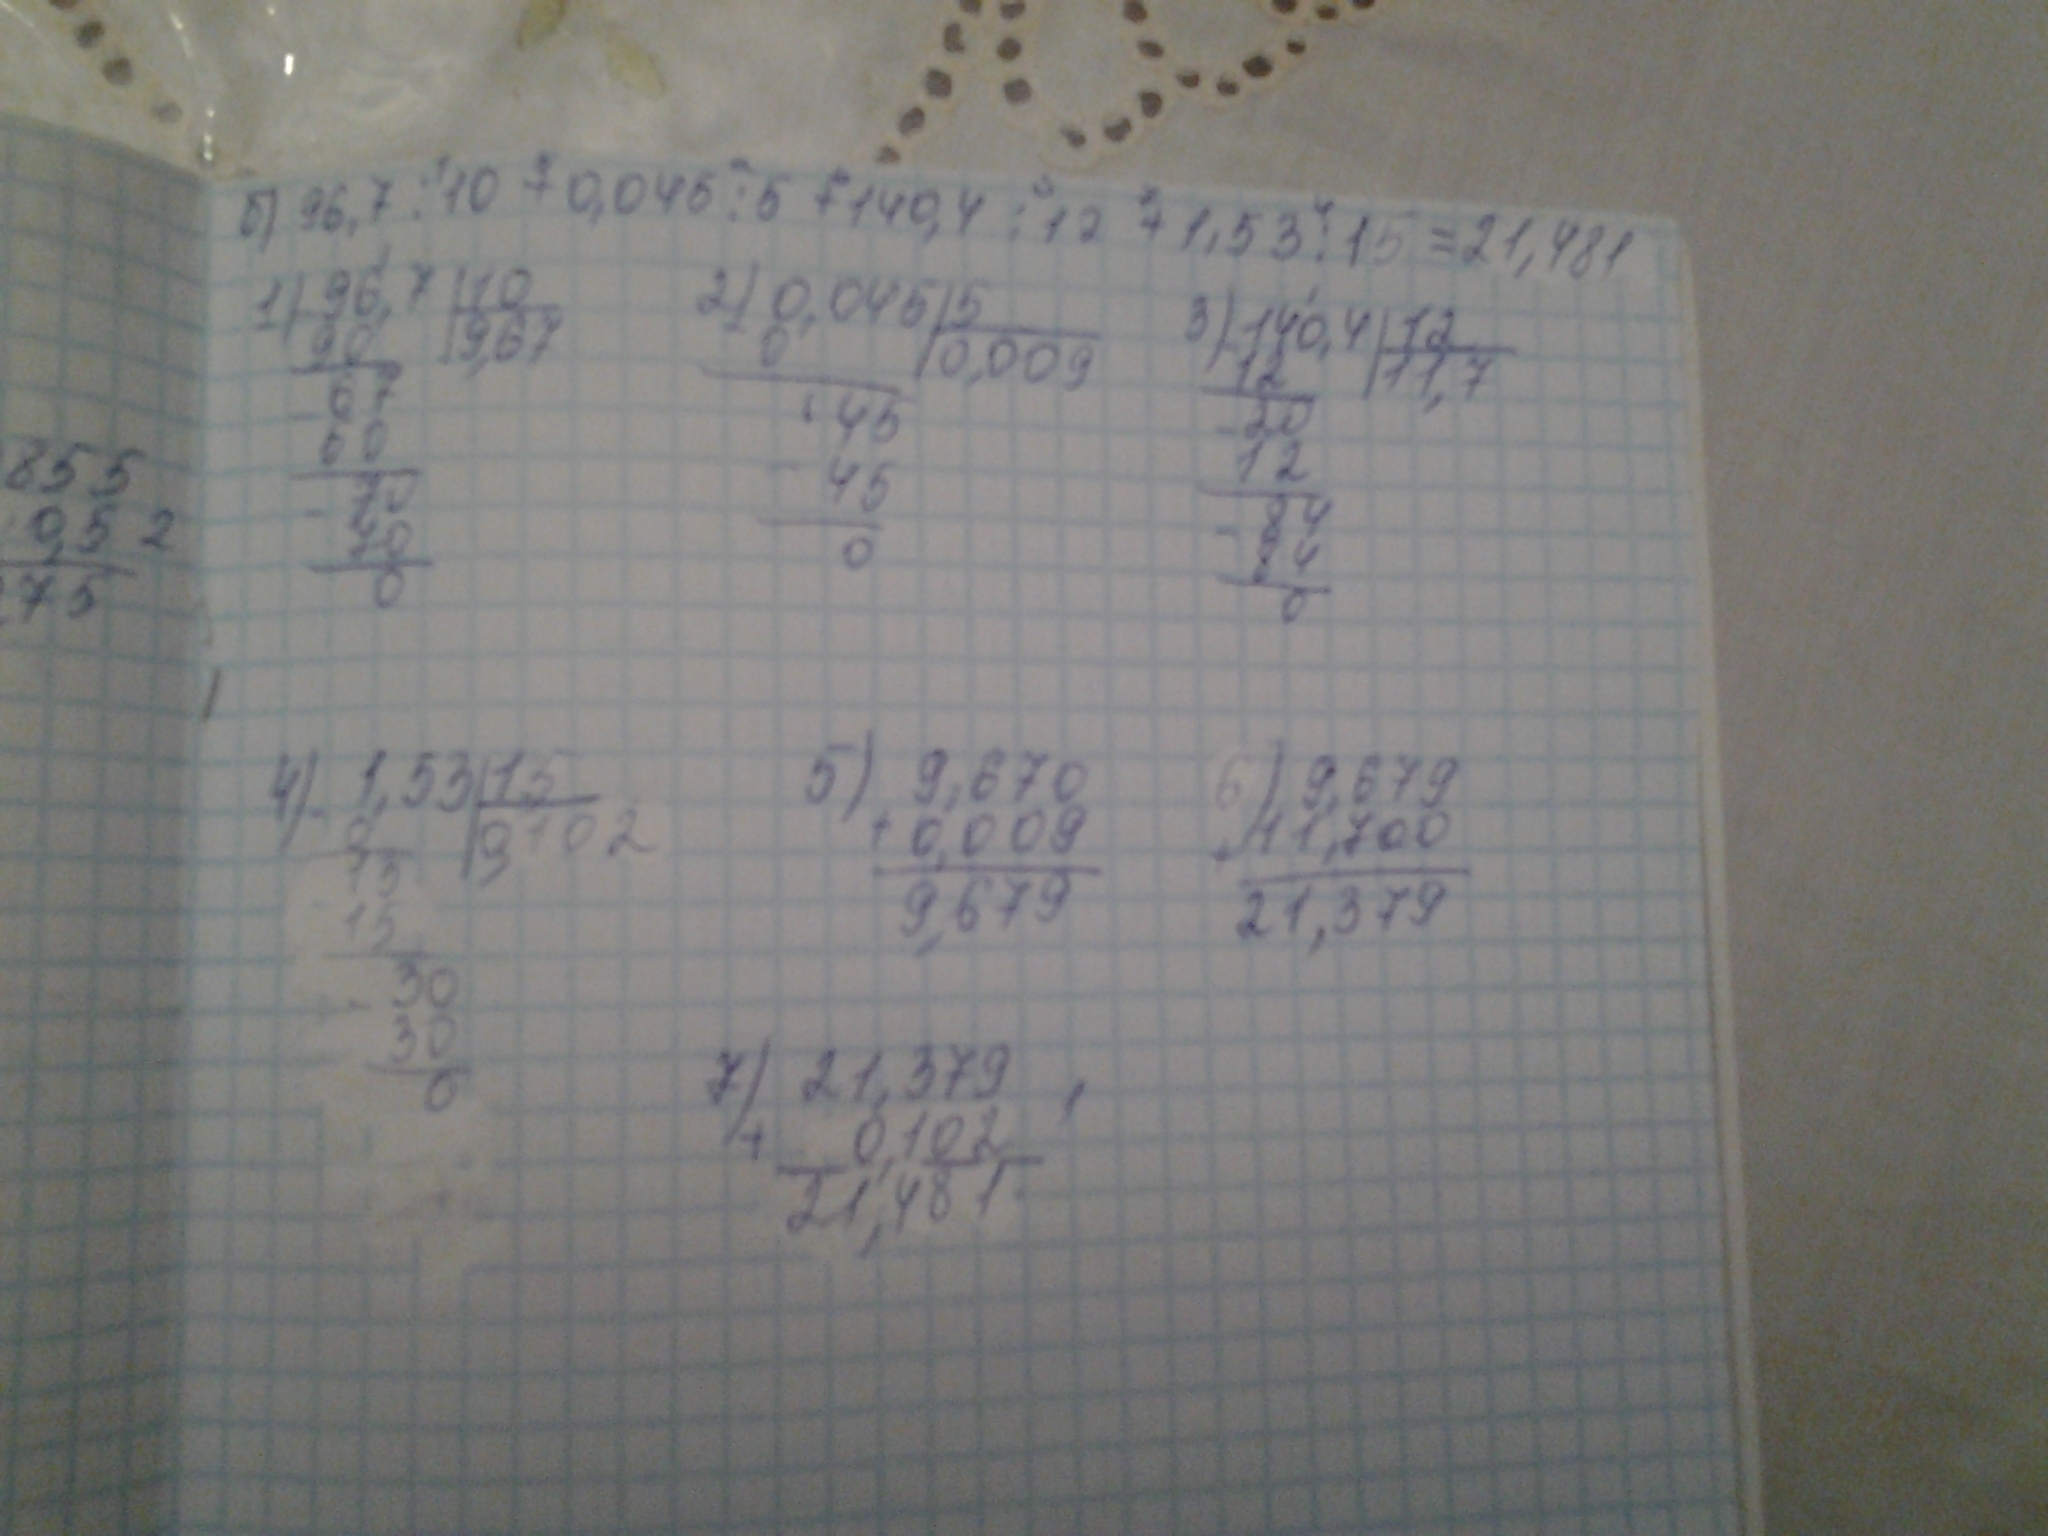 б) 96,7 : 10 + 0,045 : 5 + 140,4 : 12 + 1,53 : 15 = 21,481
1) 96,7 | 10
90 | 9,67
- 67
60
- 70
70
0
2) 0,045 | 5
0 | 0,009
45
- 45
0
3) - 140,4 | 12
12 | 11,7
- 20
12
- 84
84
0
855
0,52
275
4) - 1,53 | 15
0 | 0,102
15
15
- 30
30
0
5) 9,670
+ 0,009
9,679
6) 9,679
+ 11,700
21,379
7) 21,379
+ 0,102
21,481